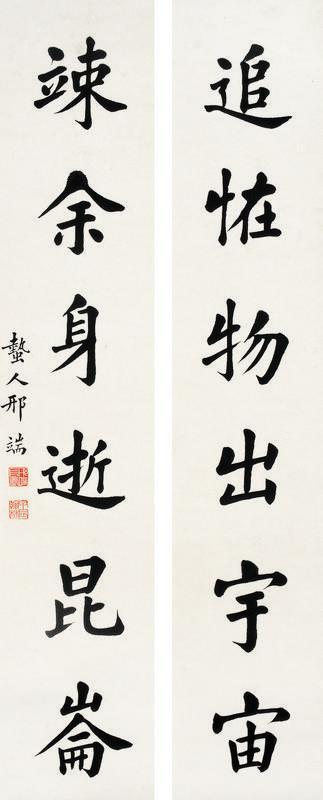 追恠物出宇宙
竦余身逝昆崙
蟄人邢端